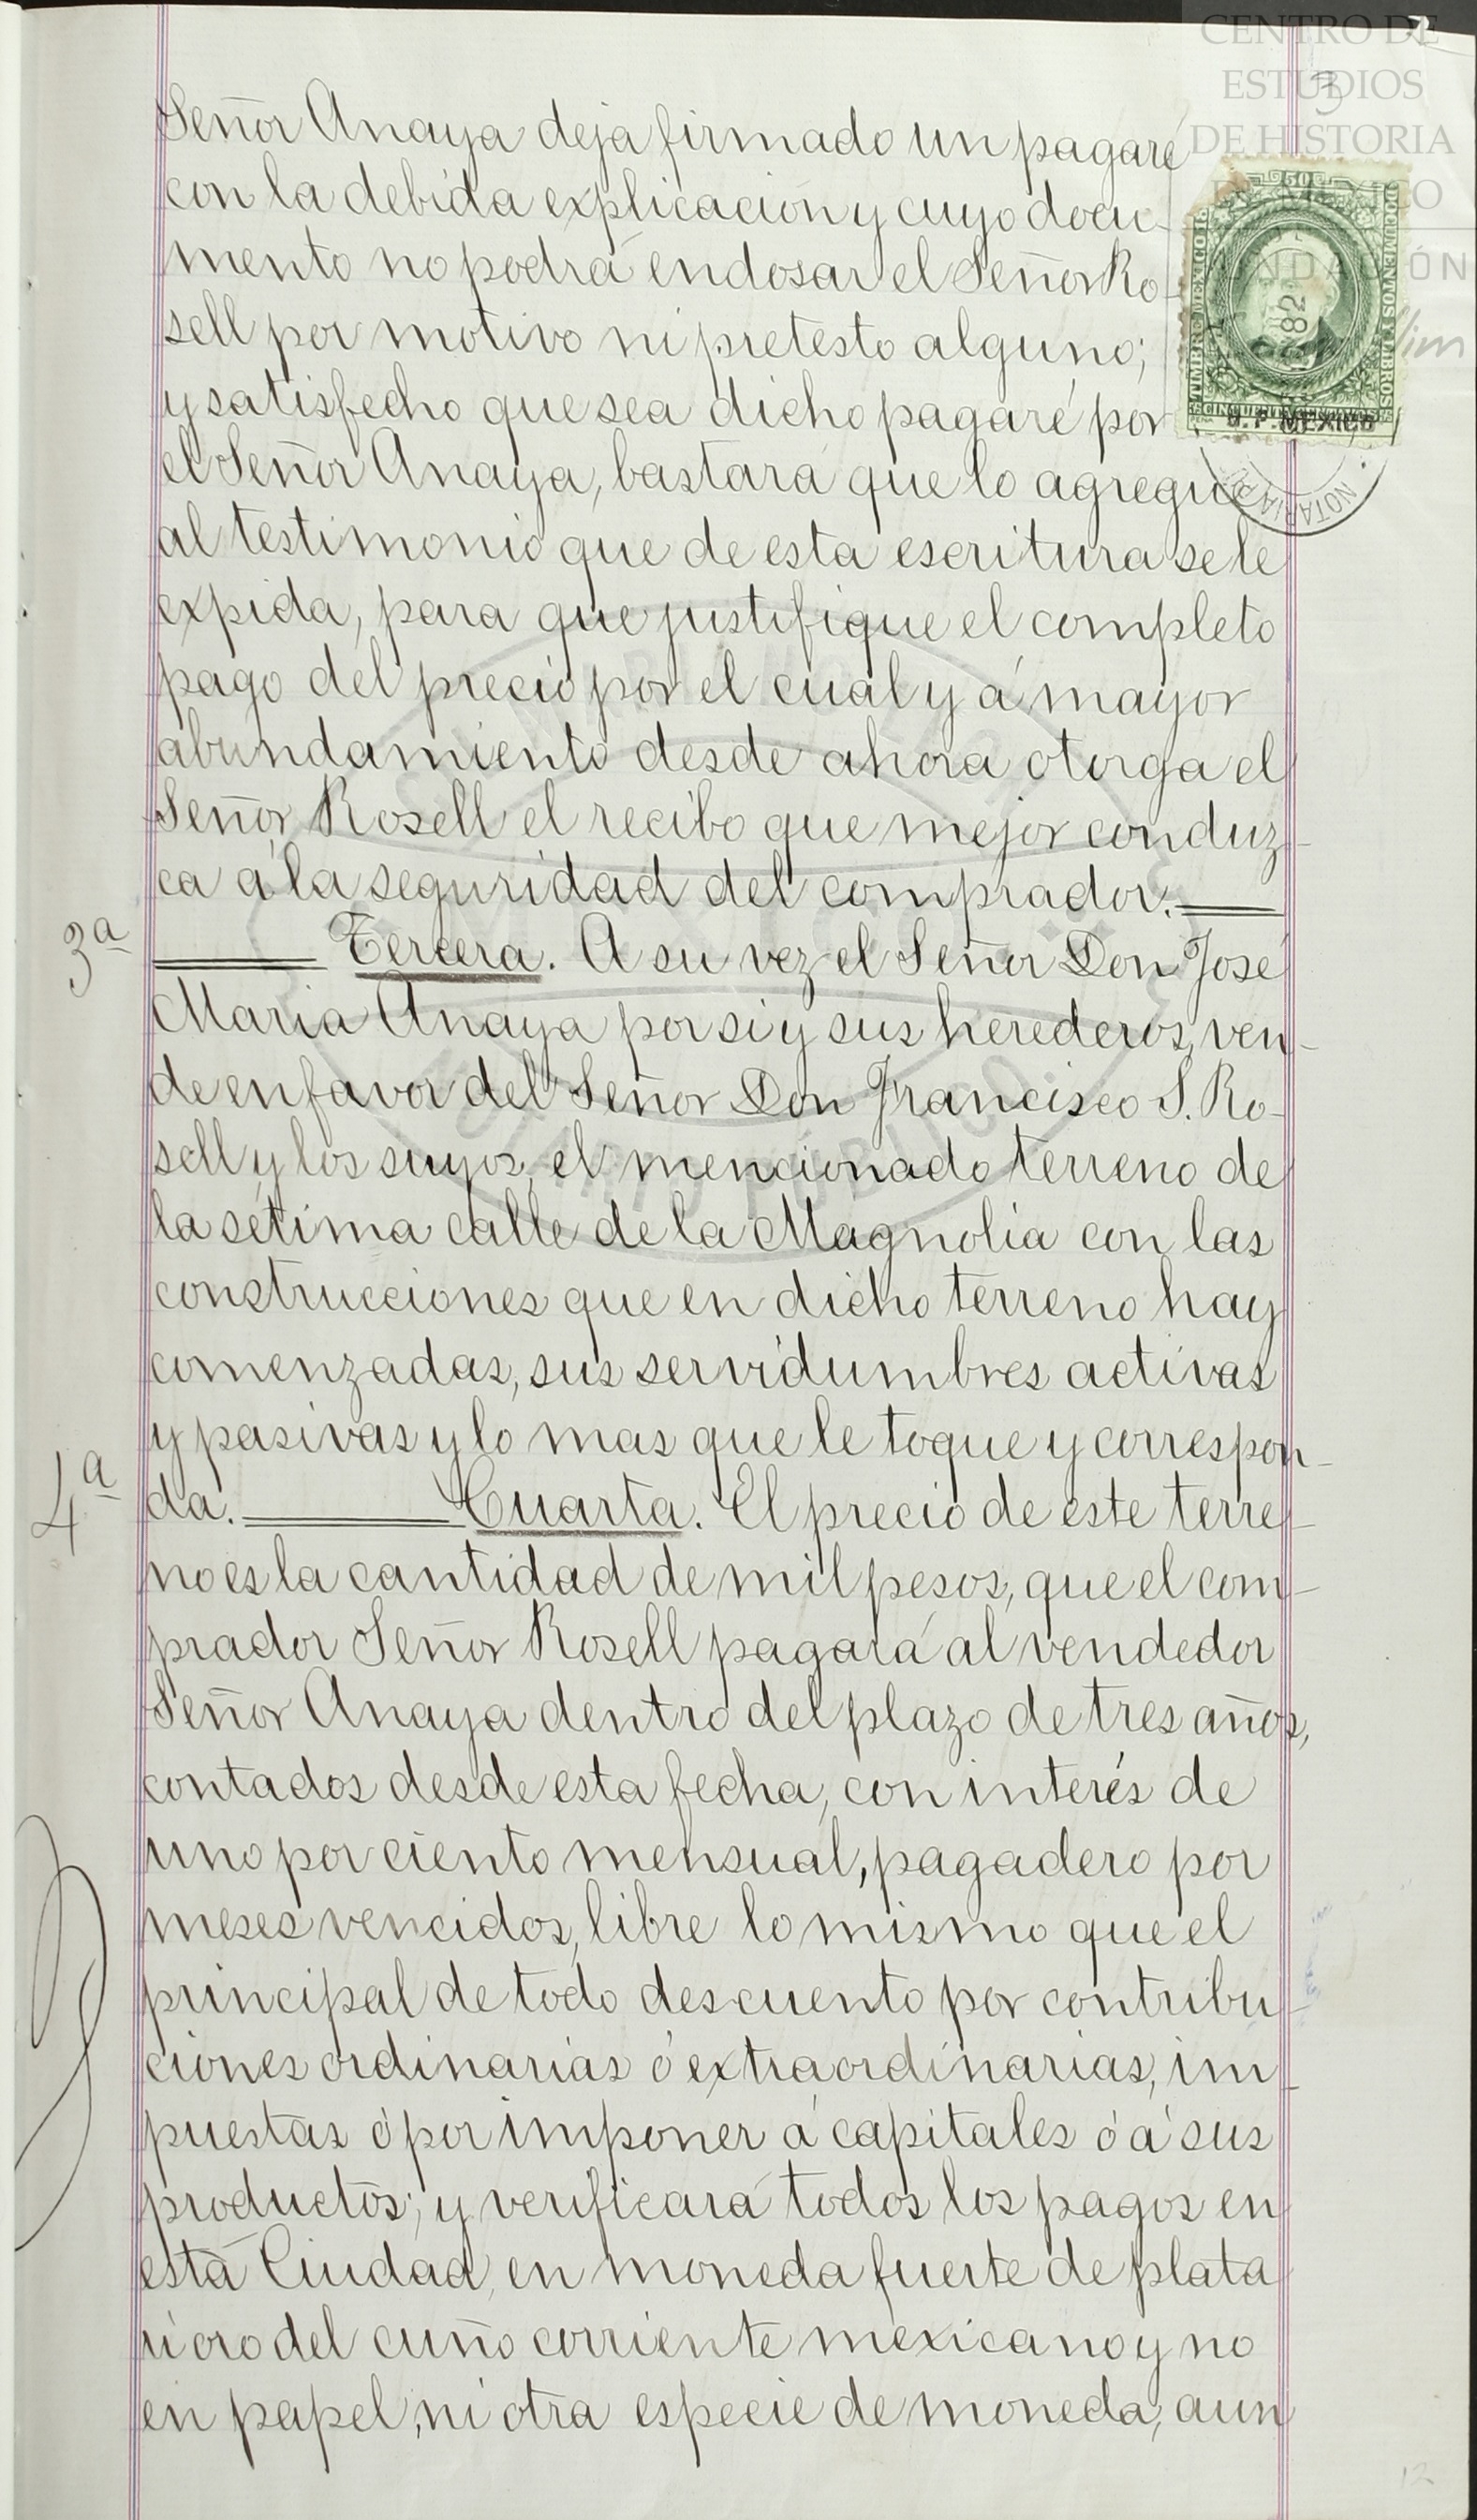 CENTRO DE
ESTUDIOS
DE HISTORIA
DE MÉXICO
FUNDACIÓN
3
Señor Anaya deja firmado un pagaré
con la debida explicación y cuyo docu-
mento no podrá endosar el Señor Ro-
sell por motivo ni pretesto alguno;
y satisfecho que sea dicho pagaré por
el Señor Anaya, bastará que lo agregue
al testimonio que de esta escritura se le
expida, para que justifique el completo
pago del precio por el cual y á mayor
abundamiento desde ahora otorga el
Señor Rosell el recibo que mejor conduz-
ca á la seguridad del comprador.
3ª
Tercera. A su vez el Señor Don José
Maria Anaya por si y sus herederos, ven-
de en favor del Señor Don Francisco S. Ro-
sell y los suyos, el mencionado terreno de
la sétima calle de la Magnolia con las
construcciones que en dicho terreno hay
comenzadas, sus servidumbres activas
y pasivas y lo mas que le toque y correspon-
4ª
da. Cuarta. El precio de este terre-
no es la cantidad de mil pesos, que el com-
prador Señor Rosell pagará al vendedor
Señor Anaya dentro del plazo de tres años,
contados desde esta fecha, con interés de
uno por ciento mensual, pagadero por
meses vencidos, libre lo mismo que el
principal de todo descuento por contribu-
ciones ordinarias ó extraordinarias, im-
puestas ó por imponer á capitales ó á sus
productos; y verificará todos los pagos en
esta Ciudad, en moneda fuerte de plata
ú oro del cuño corriente mexicano y no
en papel, ni otra especie de moneda, aun
50
TIMBRE MEXICO
DOCUMENTOS Y LIBROS
CINCUENTA CENTAVOS
82
MEXICO
NOTARIA
12